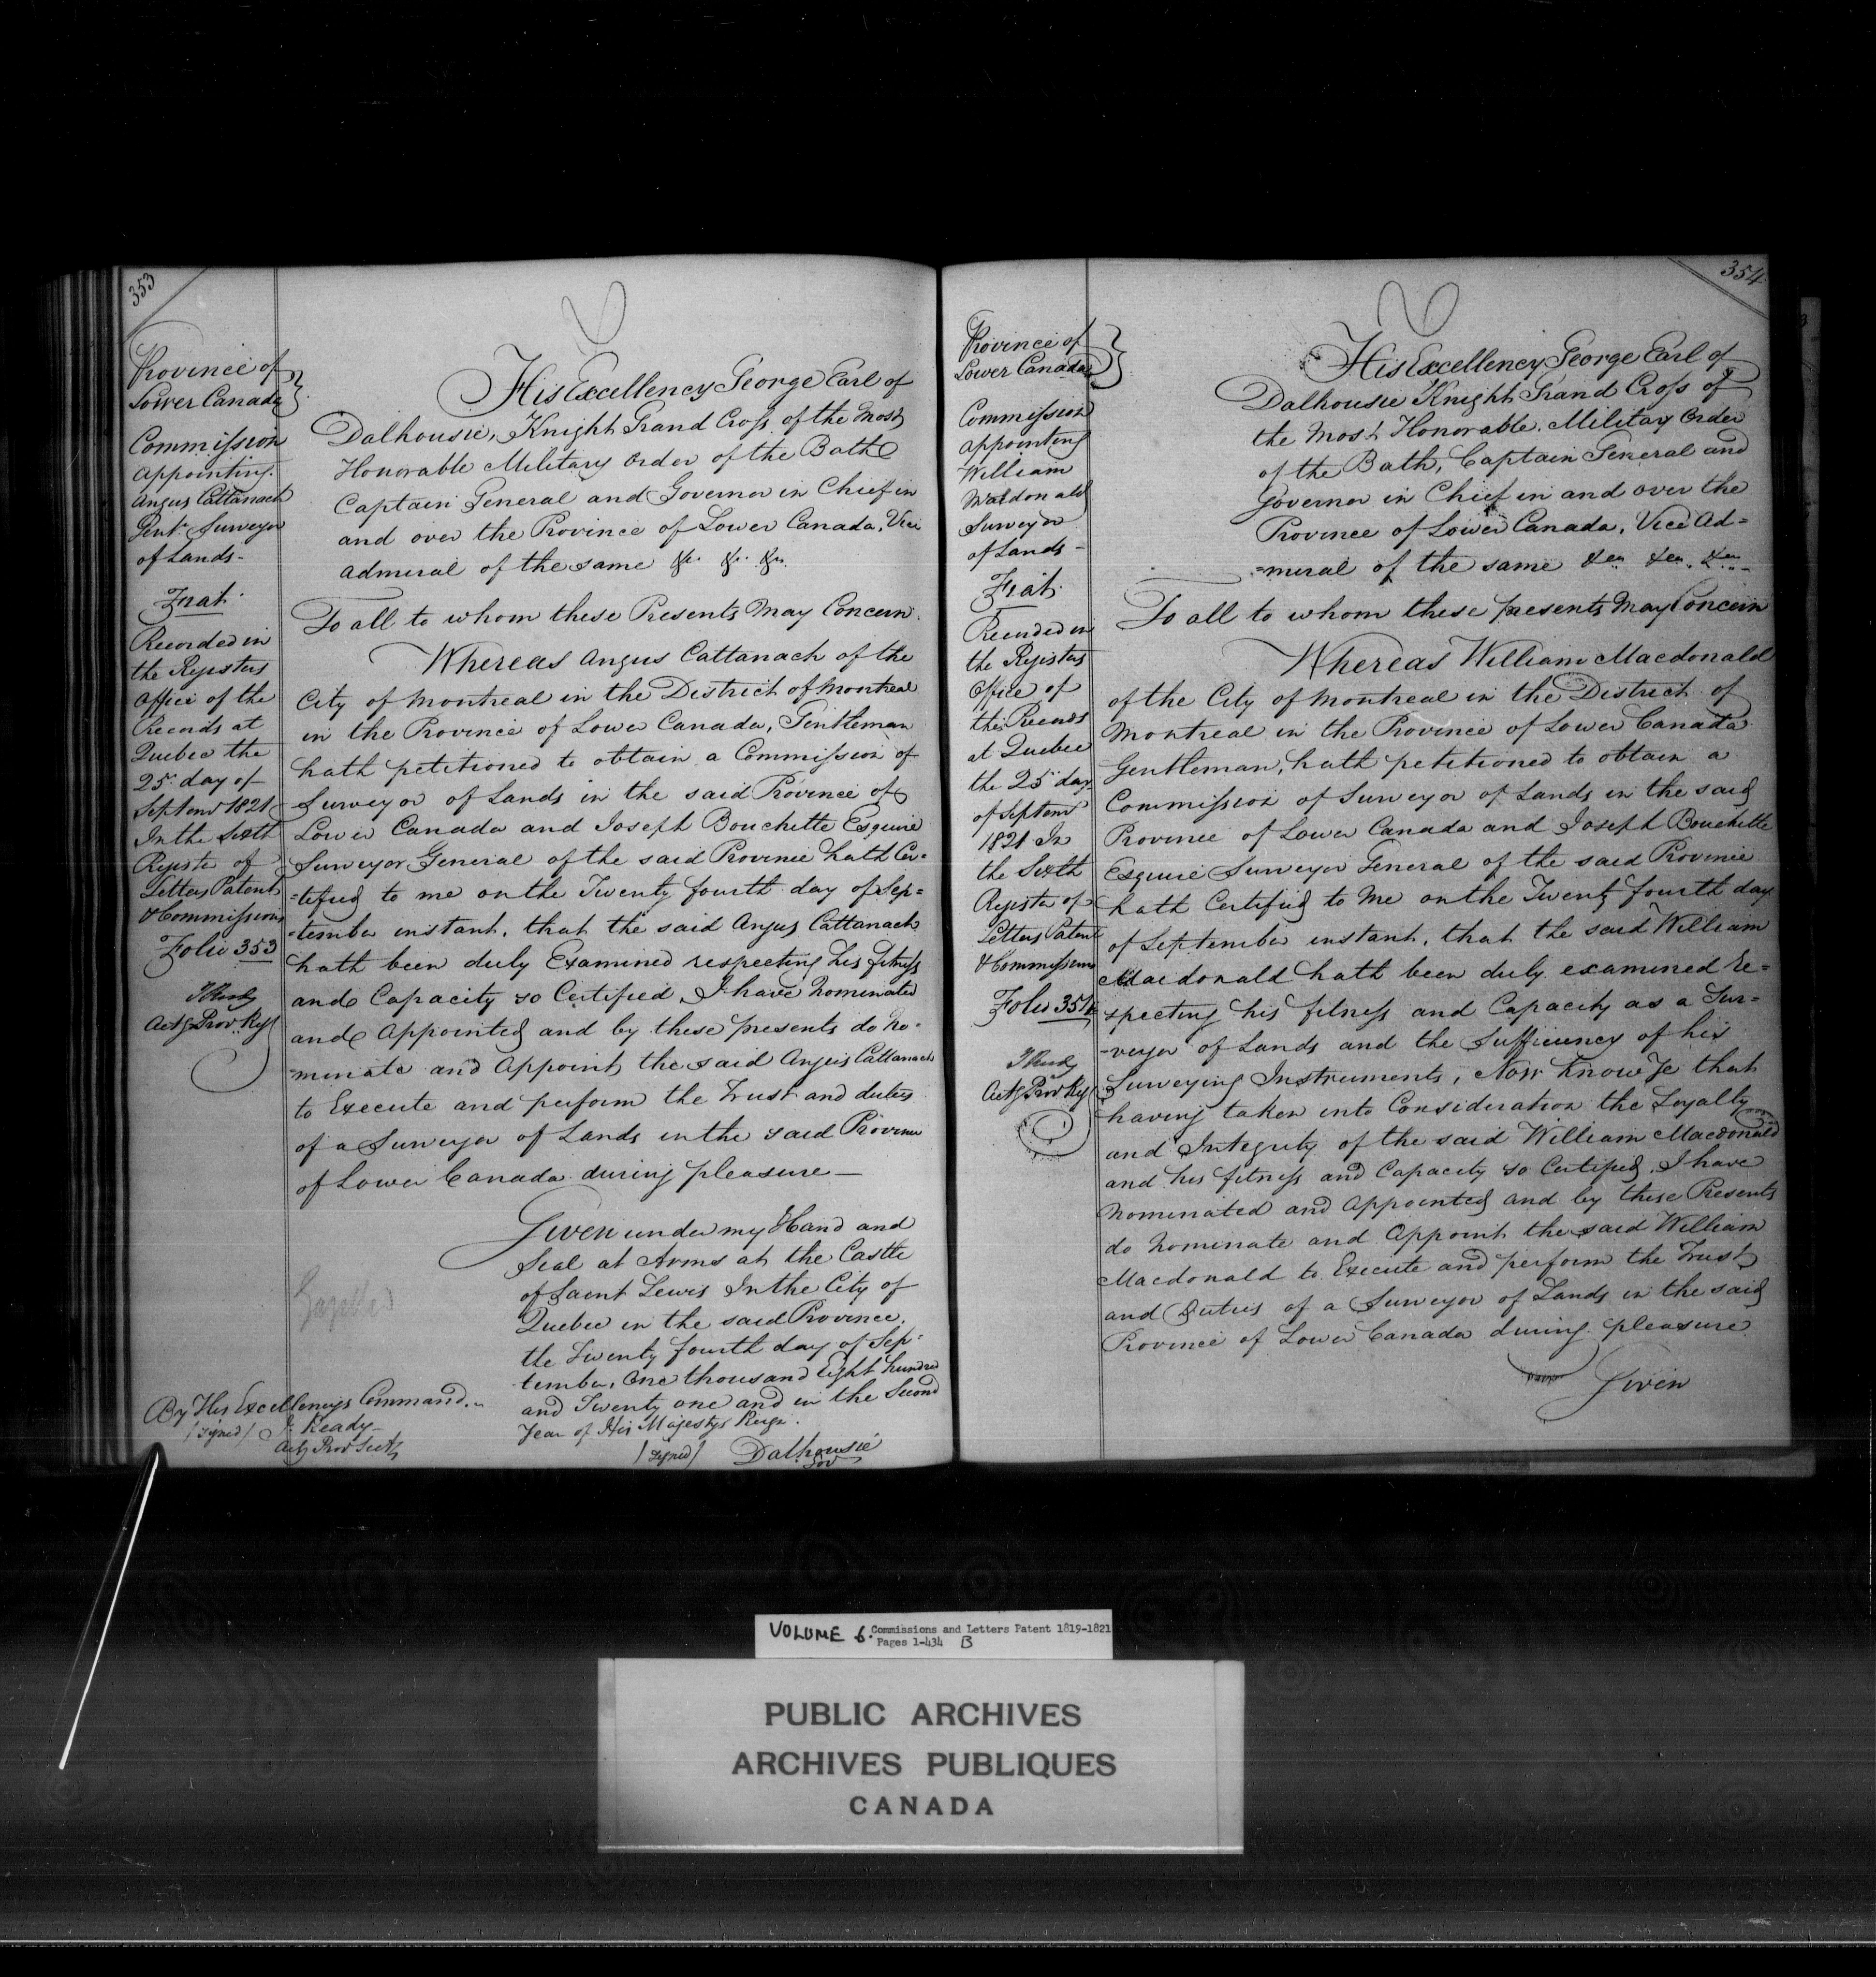 353
Province of
Lower Canada
Commission
Appointing
Angus Cattanach
Gent. Surveyor
of Lands-
Fiat.
Recorded in
the Registers
Office of the
Records at
Quebec the
25th day of
Septemr 1821
In the Sixth
Register of
Letters Patent
& Commissions
Folio 353
Actg Prov. Regr
His Excellency George Earl of
Dalhousie, Knight Grand Cross of the Most
Honorable Military Order of the Bath
Captain General and Governor in Chief in
and over the Province of Lower Canada, Vice
Admiral of the same &c. &c. &c.
To all to whom these Presents May Concern.
Whereas Angus Cattanach of the
City of Montreal in the District of Montreal
in the Province of Lower Canada, Gentleman
hath petitioned to obtain a Commission of
Surveyor of Lands in the said Province of
Lower Canada and Joseph Bouchette Esquire
Surveyor General of the said Province hath Cer=
=tified to me on the Twenty fourth day of Sep=
=tember instant, that the said Angus Cattanach
hath been duly Examined respecting his fitness
and Capacity so Certified, I have Nominated
and Appointed and by these presents do No=
=minate and Appoint the said Angus Cattanach
to Execute and perform the Trust and duties
of a Surveyor of Lands in the said Province
of Lower Canada during pleasure—
Given under my Hand and
Seal at Arms at the Castle
of Saint Lewis In the City of
Quebec in the said Province,
the Twenty fourth day of Sep=
tember, One thousand Eight hundred
and Twenty one and in the Second
Year of His Majestys Reign.
(signed) Dalhousie
Gov
By His Excellencys Command.
(signed) J. Ready
Actg Prov Secty
354
Province of
Lower Canada
Commission
appointing
William
Macdonald
Surveyor
of Lands-
Fiat.
Recorded in
the Registers
Office of
the Records
at Quebec
the 25th day
of Septemr
1821 In
the Sixth
Register of
Letters Patent
& Commissions
Folio 354
Actg Prov Regr
His Excellency George Earl of
Dalhousie Knight Grand Cross of
the Most Honorable Military Order
of the Bath, Captain General and
Governor in Chief in and over the
Province of Lower Canada, Vice Ad=
=miral of the same &ca &ca. &ca
To all to whom these presents May Concern
Whereas William Macdonald
of the City of Montreal in the District of
Montreal in the Province of Lower Canada
Gentleman, hath petitioned to obtain a
Commission of Surveyor of Lands in the said
Province of Lower Canada and Joseph Bouchette
Esquire Surveyor General of the said Province
hath Certified to Me on the Twenty fourth day
of September instant, that the said William
Macdonald hath been duly examined Re=
specting his fitness and Capacity as a Sur=
=veyor of Lands and the Sufficiency of his
Surveying Instruments, Now Know Ye that
having taken into Consideration the Loyalty
and Integrity of the said William Macdonald
and his fitness and Capacity so Certified, I have
Nominated and Appointed and by these Presents
do Nominate and Appoint the said William
Macdonald to Execute and perform the Trust
and Duties of a Surveyor of Lands in the said
Province of Lower Canada during pleasure.
Given
VOLUME 6. Commissions and Letters Patent 1819-1821
Pages 1-434 B
PUBLIC ARCHIVES
ARCHIVES PUBLIQUES
CANADA